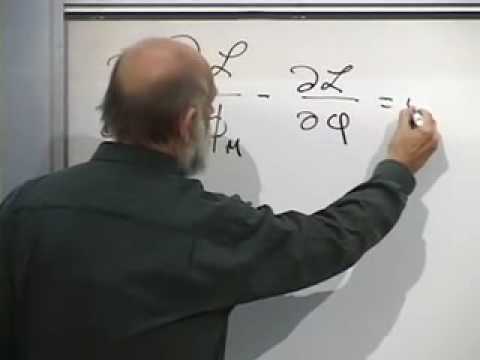 ∂ ∂ℒ / ∂φ_μ - ∂ℒ / ∂φ =